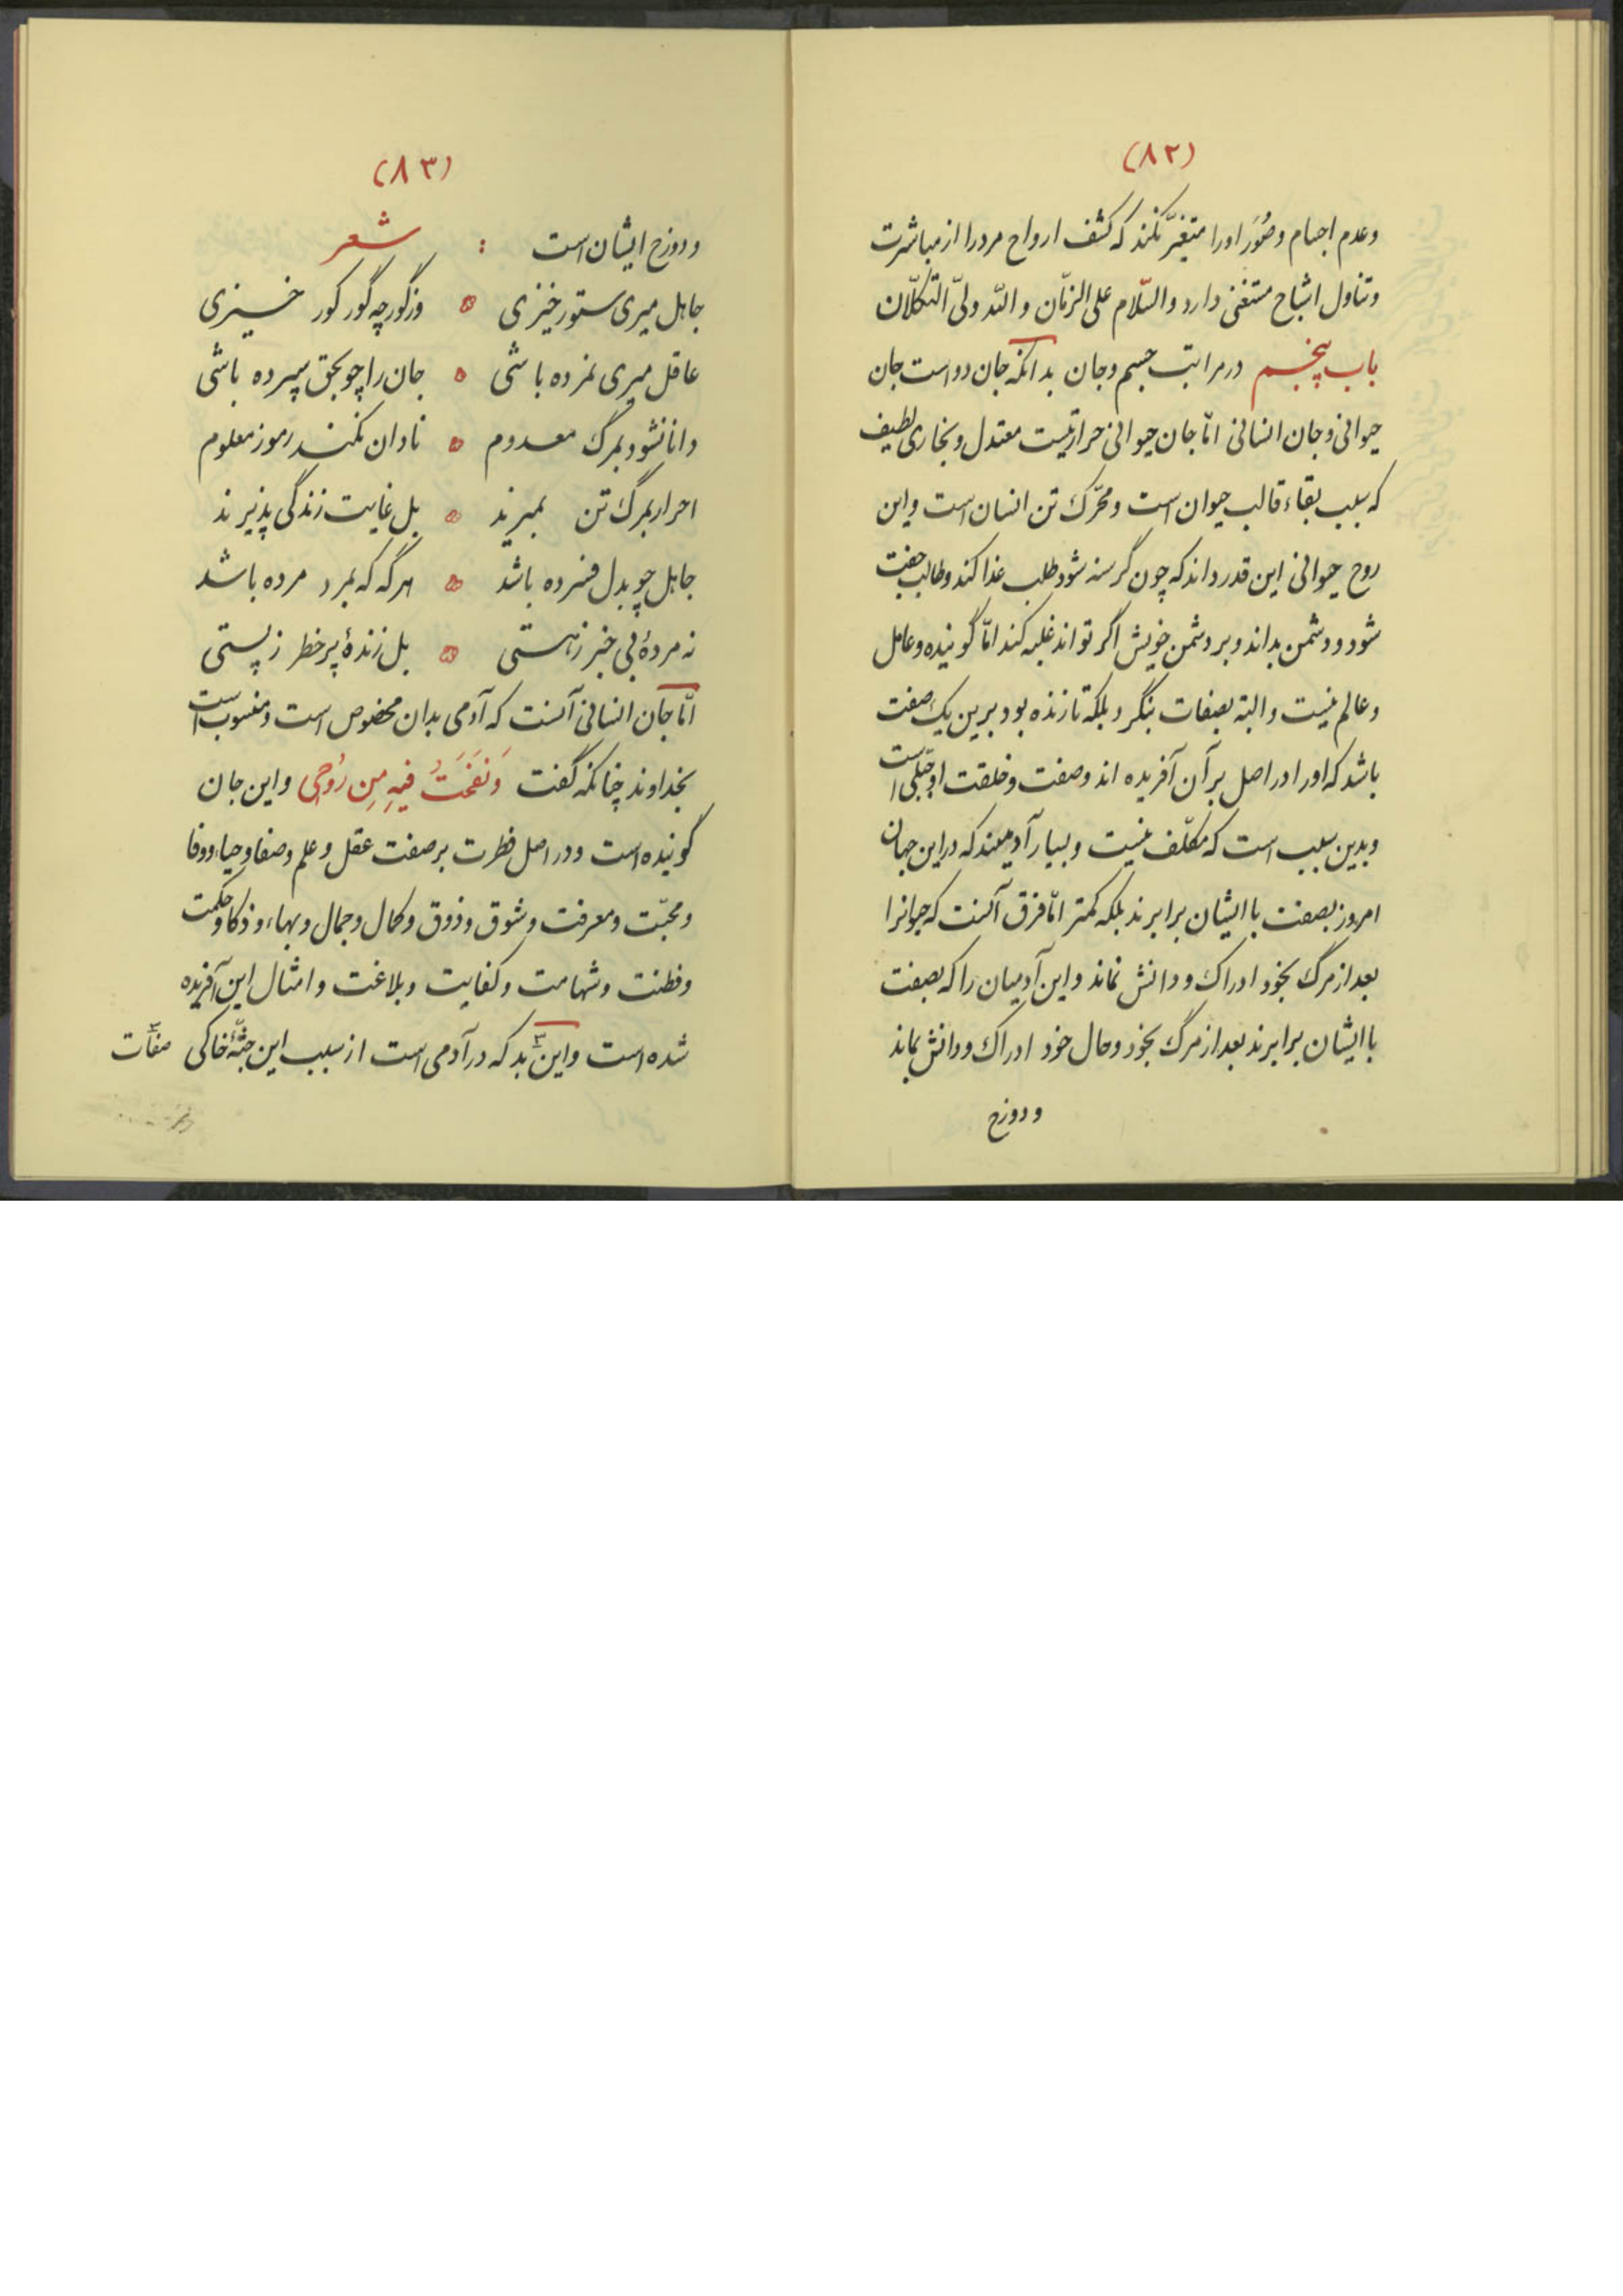 (۸۲)
وعدم اجسام وصُوَر اورا متغیّر نکند که کشف ارواح مرد را از مباشرت
وتناول اشباح مستغنی دارد والسّلام علی الزمّان والله ولیّ التکلّان
باب پنجم در مراتب جسم وجان بدانکه جان دو است جان
حیوانی وجان انسانی امّا جان حیوانی حرارتیست معتدل وبخاری لطیف
که سبب بقاء قالب حیوان است ومحرّک تن انسان است واین
روح حیوانی این قدر داند که چون گرسنه شود طلب غذا کند وطالب جفت
شود ودشمن بداند وبر دشمن خویش اگر تواند غلبه کند امّا گوینده وعامل
وعالم نیست والبته بصفات بنگردد بلکه تا زنده بود برین یک صفت
باشد که اورا در اصل بر آن آفریده اند وصفت وخلقت او جبلّی است
وبدین سبب است که مکلّف نیست وبسیار آدمیند که در این جهان
امروز بصفت با ایشان برابرند بلکه کمتر امّا فرق آنست که حیوانرا
بعد از مرگ بخود ادراک ودانش نماند واین آدمیان را که بصفت
با ایشان برابرند بعد از مرگ بخود وحال خود ادراک ودانش بماند
ودوزخ
(۸۳)
ودوزخ ایشان است : شعر
جاهل میری ستور خیزی ۞ وز گور چه گور کور خیزی
عاقل میری نمرده باشی ۞ جان را چو بحق سپرده باشی
دانا نشود بمرگ معدوم ۞ نادان نکند رموز معلوم
احرار بمرگ تن نمیرند ۞ بل غایت زندگی پذیرند
جاهل چو بدل فسرده باشد ۞ هرگه که بمرد مرده باشد
نه مردهٔ بی خبر ز هستی ۞ بل زندهٔ پر خطر ز پستی
امّا جان انسانی آنست که آدمی بدان مخصوص است ومنسوب است
بخداوند چنانکه گفت وَنَفَخْتُ فیهِ مِن رُوحی واین جان
گوینده است ودر اصل فطرت بر صفت عقل وعلم وصفا وحیا ووفا
ومحبّت ومعرفت وشوق وذوق وکمال وجمال وبهاء وذکا وحکمت
وفطنت وشهامت وکفایت وبلاغت وامثال این آفریده
شده است واین بد که در آدمی است از سبب این جثّهٔ خاکی صفات